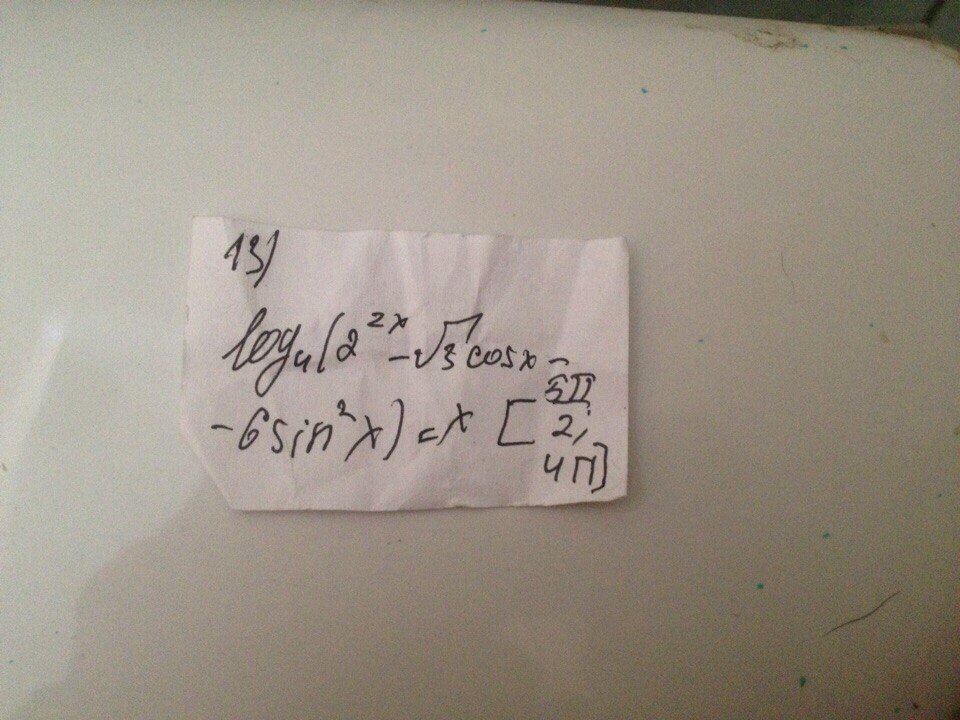 13)
log₄(2²ˣ-√3cosx-
-6sin²x)=x [5π/2;
4π]